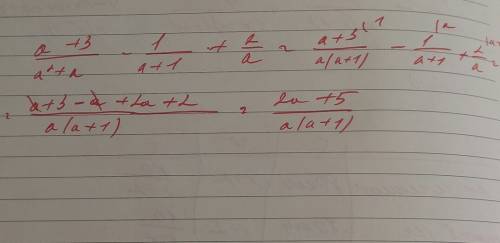 (a+3)/(a²+a) - 1/(a+1) + 2/a = (a+3)/(a(a+1)) ⁽¹ - 1/(a+1) ⁽ᵃ + 2/a ⁽ᵃ⁺ =
= (a+3-a+2a+2)/(a(a+1)) = (2a+5)/(a(a+1))